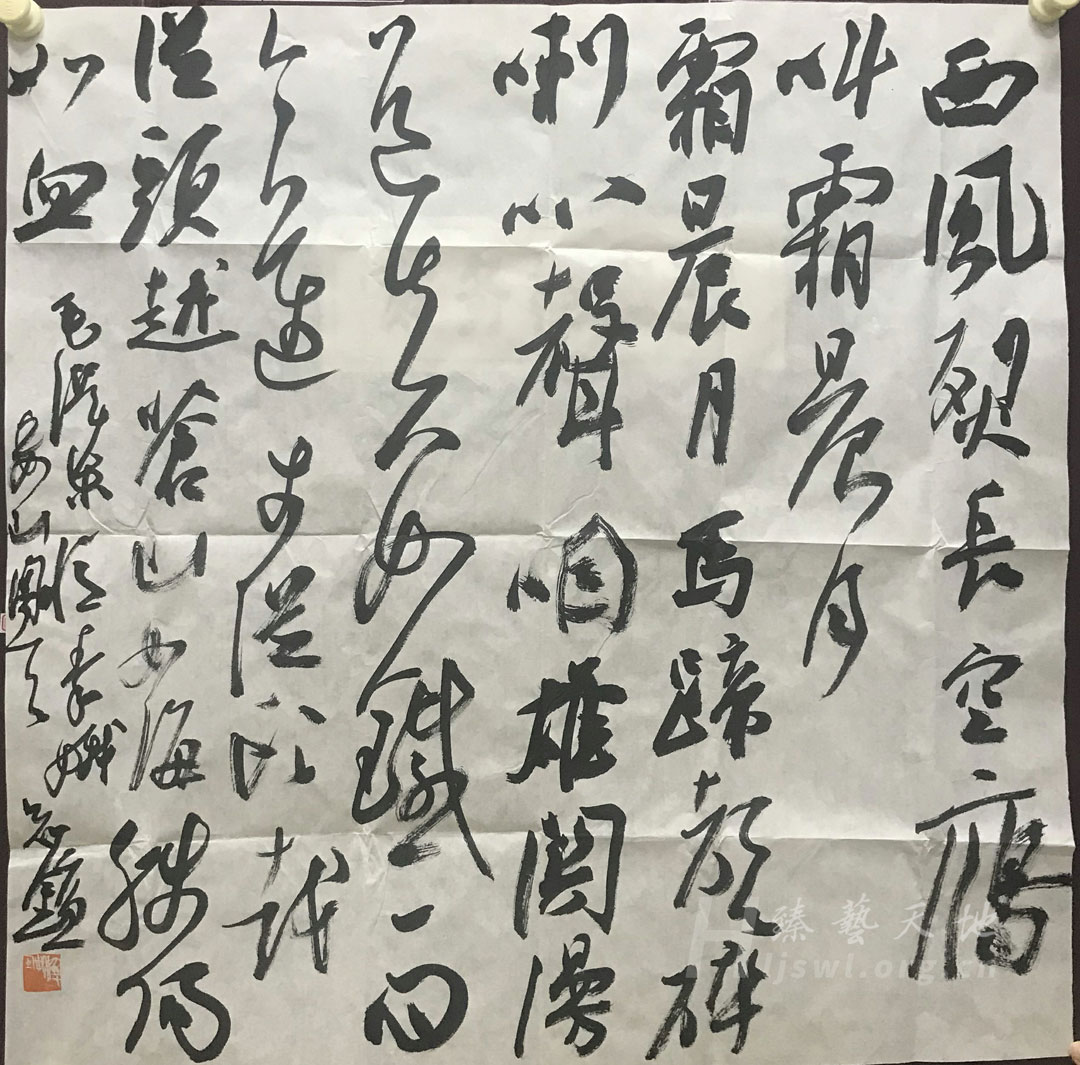 西風烈長空鴈
叫霜晨月
霜晨月馬蹄聲碎
喇叭聲咽雄関漫
道真如鐵而
今邁步從頭越
從頭越蒼山如海殘陽
如血
毛澤東憶秦娥
婁山關
臻藝天地
ljswl.org.cn